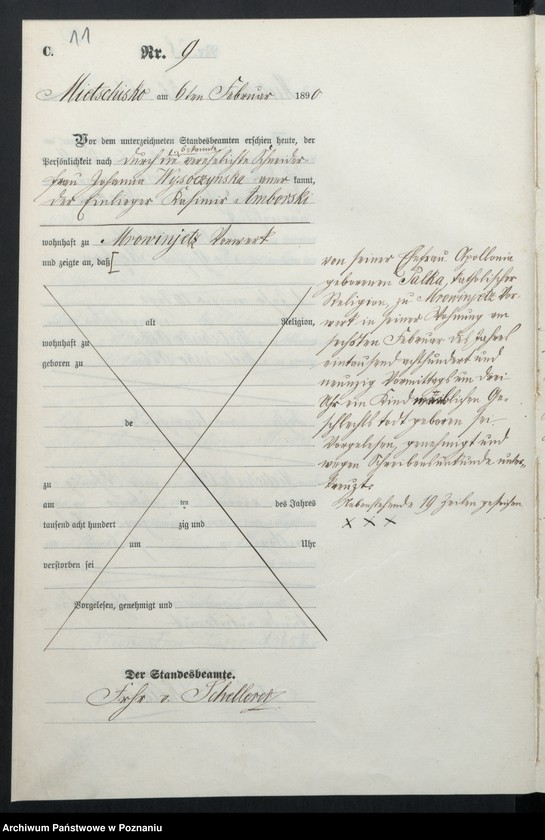 11
C.
Nr. 9
Mietschisko am 6ten Februar 1890
Vor dem unterzeichneten Standesbeamten erschien heute, der
Persönlichkeit nach durch die bekannte verehelichte Schneider-
frau Johanna Wysoczynska aner kannt,
der Einlieger Kasimir Amborski
wohnhaft zu Mrowinjetz Vorwerk
und zeigte an, daß [
alt Religion,
wohnhaft zu
geboren zu
de
zu
am ten des Jahres
tausend acht hundert zig und
um Uhr
verstorben sei
Vorgelesen, genehmigt und
von seiner Ehefrau Apollonia
geborenen Palka, katholischer
Religion, zu Mrowinjetz Vor-
werk in seiner Wohnung am
sechsten Februar des Jahres
eintausend achthundert und
neunzig Vormittags um drei
Uhr ein Kind männlichen Ge-
schlechts todt geboren sei.
Vorgelesen, genehmigt und
wegen Schreibensunkunde unter-
kreuzt.
Nebenstehende 19 Zeilen gestrichen
x x x
Der Standesbeamte.
Frhr v.
Archiwum Państwowe w Poznaniu